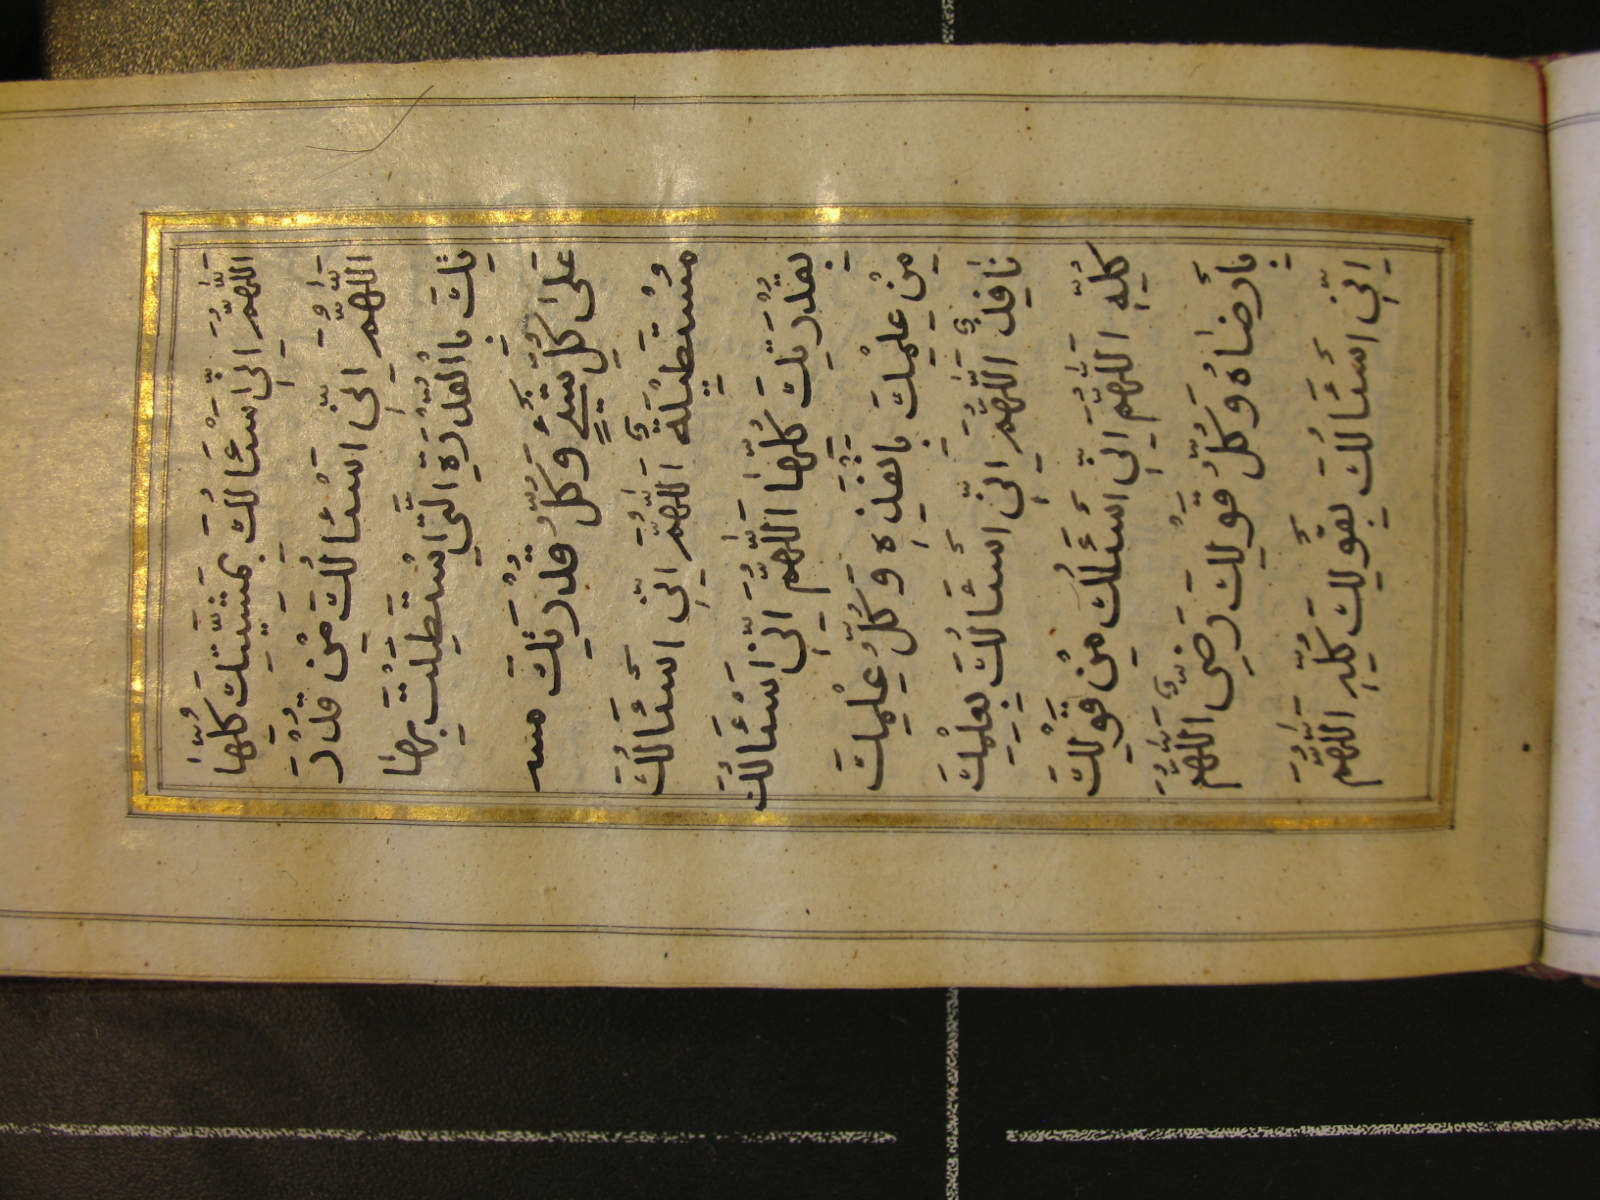 اَللّٰهُمَّ اِنّي اَسْئَالُكَ بِمَشِيَّتِكَ كُلِّهٰا
اَللّٰهُمَّ اِنّي اَسْئَالُكَ مِنْ قُدْرَ
تِكَ بِاالْقُدْرَةِ الَّتي اسْتَطَيْلْتَ بِهٰا
عَلىٰ كُلِّ شَيْءٍ وَكُلُّ قُدْرَتِكَ مسـ
مُسْتَطيْلَةٌ اَللّٰهُمَّ اِنّي اَسْئَالُكَ
بِقُدْرَتِكَ كُلِّهٰا اَللّٰهُمَّ اِنّي اَسْئَالُكَ
مِنْ عِلْمِكَ بِانْفَذِهِ وَكُلُّ عِلْمِكَ
نٰافِذٌ اَللّٰهُمَّ اِنّي اَسْئَالُكَ بِعِلْمِكَ
كُلِّهِ اَللّٰهُمَّ اِنّي اَسْئَلُكَ مِنْ قَوْلِكَ
بِاَرْضٰاهُ وَكُلُّ قَوْلِكَ رَضِيٌّ اَللّٰهُمَّ
اِنّي اَسْئَالُكَ بِقَوْلِكَ كُلِّهِ اَللّٰهُمَّ